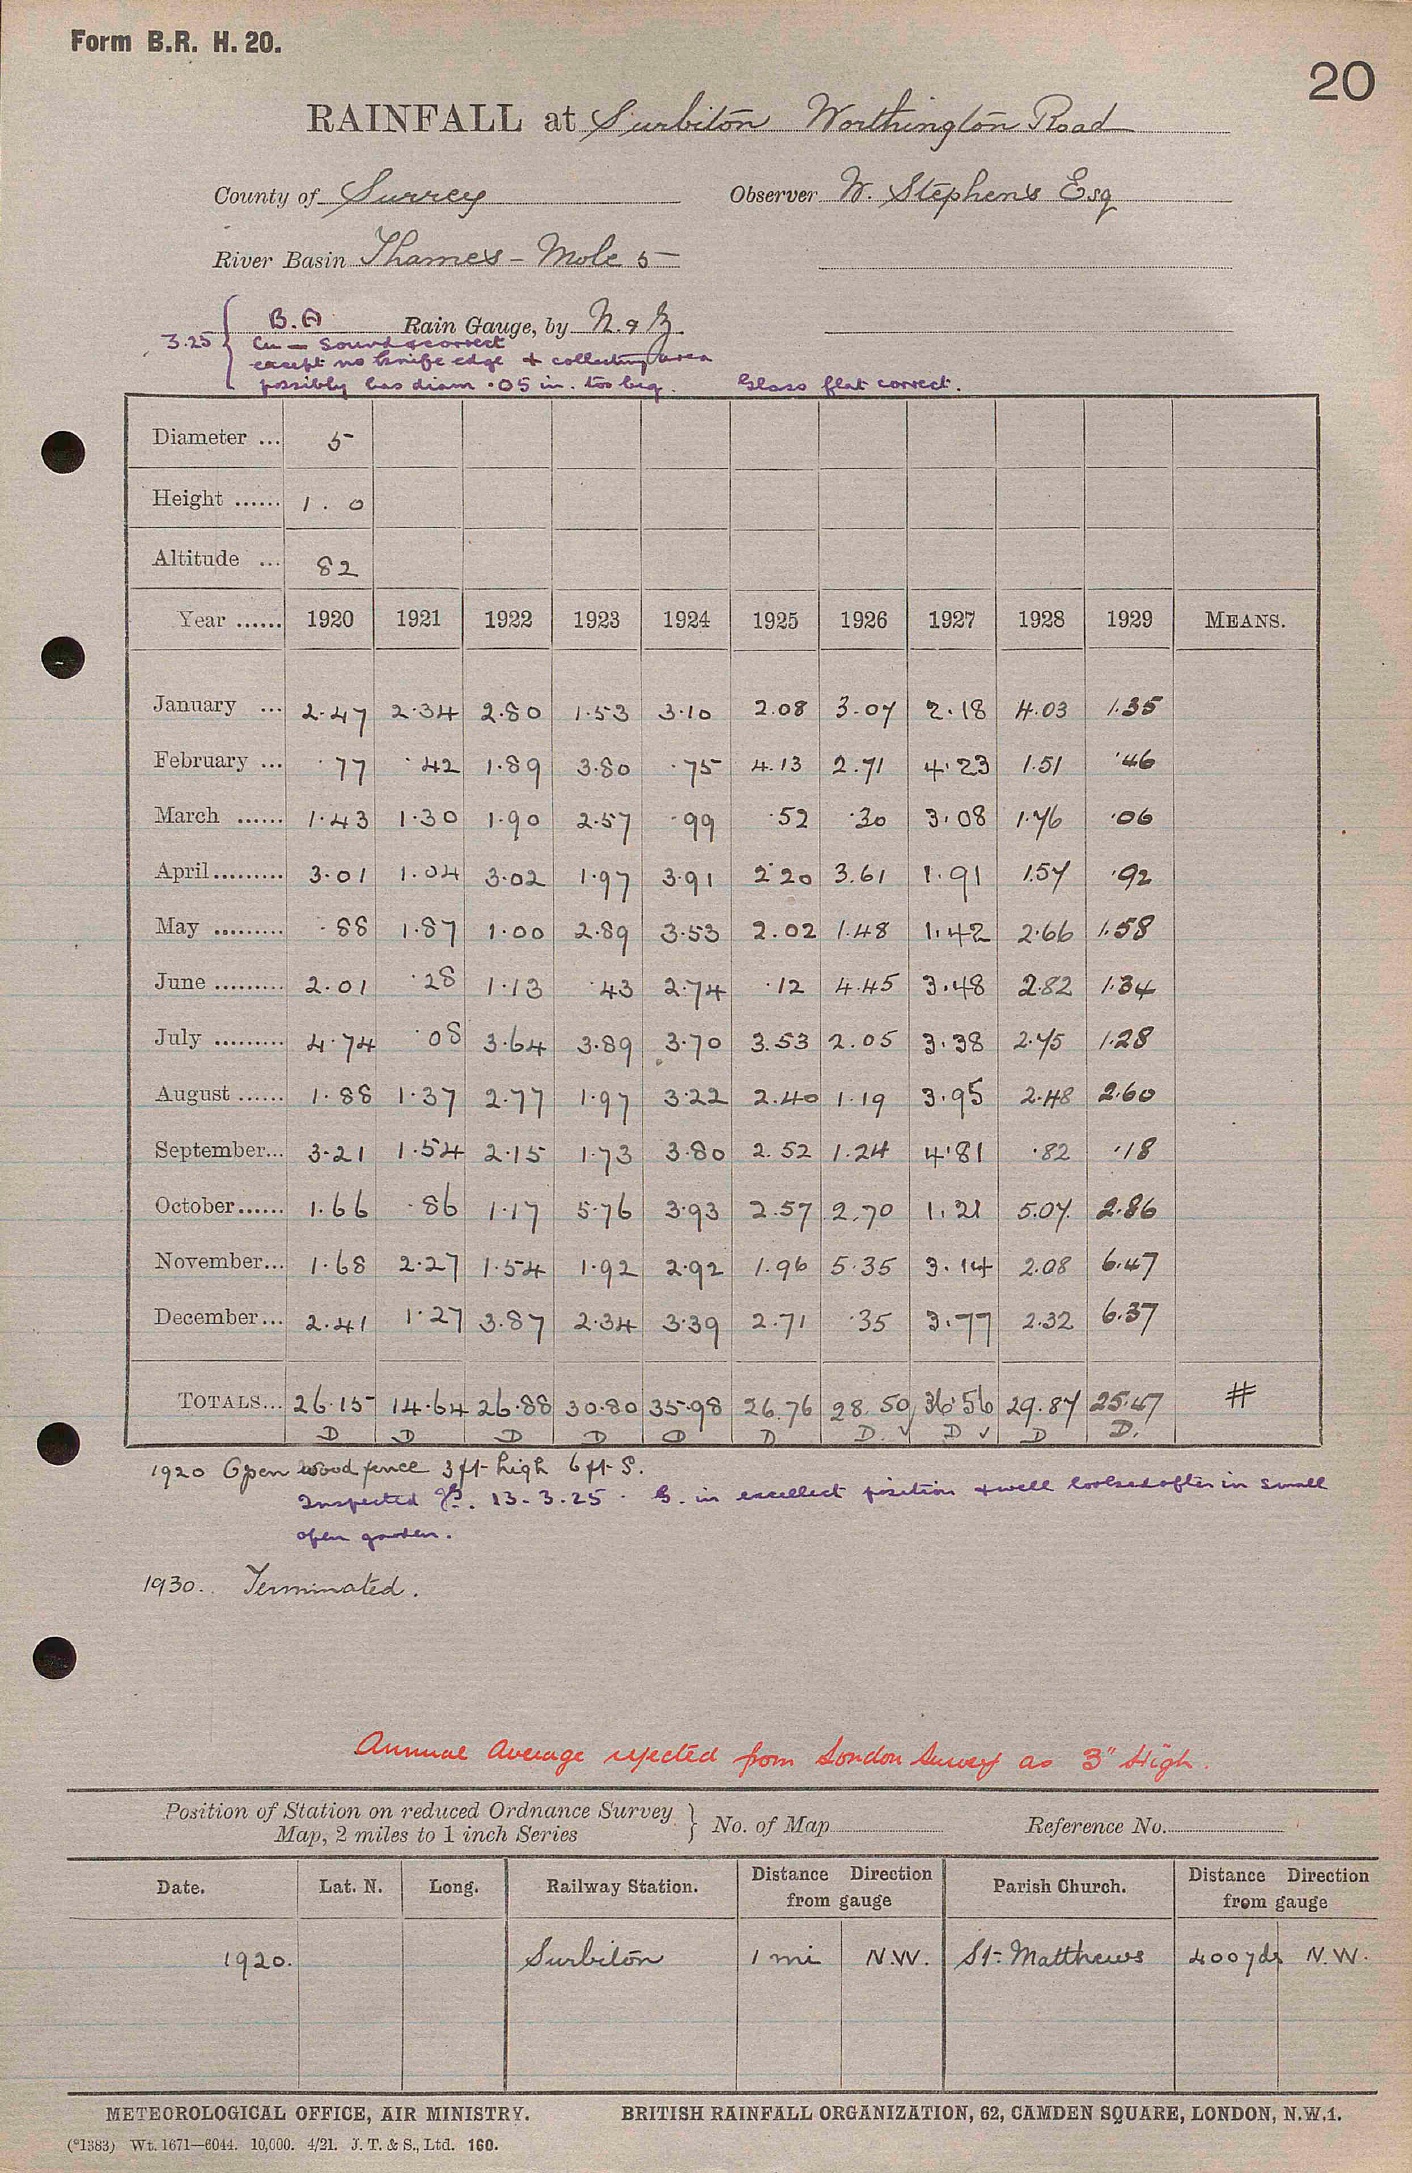 Form B.R. H. 20.
20
RAINFALL at Surbiton Worthington Road
County of Surrey Observer W. Stephens Esq
River Basin Thames - Mole 5
3.25 { B.A Rain Gauge, by N. & Z.
Cu - Sound & correct
except no knife edge & collecting area
possibly has diam .05 in. too big. Glass flat correct.
Diameter ... 5
Height ...... 1.0
Altitude ... 82
Year ...... 1920 1921 1922 1923 1924 1925 1926 1927 1928 1929 MEANS.
January ... 2.47 2.34 2.80 1.53 3.10 2.08 3.07 2.18 4.03 1.35
February ... .77 .42 1.89 3.80 .75 4.13 2.71 4.23 1.51 .46
March ...... 1.43 1.30 1.90 2.57 .99 .52 .30 3.08 1.76 .06
April......... 3.01 1.04 3.02 1.97 3.91 2.20 3.61 1.91 1.57 .92
May ......... .88 1.87 1.00 2.89 3.53 2.02 1.48 1.42 2.66 1.58
June ......... 2.01 .28 1.13 .43 2.74 .12 4.45 3.48 2.82 1.34
July ......... 4.74 .08 3.64 3.89 3.70 3.53 2.05 3.38 2.75 1.28
August ...... 1.88 1.37 2.77 1.97 3.22 2.40 1.19 3.95 2.48 2.60
September... 3.21 1.54 2.15 1.73 3.80 2.52 1.24 4.81 .82 .18
October...... 1.66 .86 1.17 5.76 3.93 2.57 2.70 1.21 5.07 2.86
November... 1.68 2.27 1.54 1.92 2.92 1.96 5.35 3.14 2.08 6.47
December... 2.41 1.27 3.87 2.34 3.39 2.71 .35 3.77 2.32 6.37
TOTALS... 26.15 14.64 26.88 30.80 35.98 26.76 28.50 36.56 29.87 25.47 #
D D D D D D D. ✓ D ✓ D D.
1920 Open wood fence 3 ft high 6 ft S.
Inspected 13.3.25. G. in excellent position & well looked after in small
open garden.
1930. Terminated.
Annual Average rejected from London Survey as 3" High.
Position of Station on reduced Ordnance Survey } No. of Map Reference No.
Map, 2 miles to 1 inch Series
Date. Lat. N. Long. Railway Station. Distance Direction from gauge Parish Church. Distance Direction from gauge
1920. Surbiton 1 mi N.W. St. Matthews 400 yds N.W.
METEOROLOGICAL OFFICE, AIR MINISTRY. BRITISH RAINFALL ORGANIZATION, 62, CAMDEN SQUARE, LONDON, N.W.1.
(*1383) Wt. 1671—6044. 10,000. 4/21. J. T. & S., Ltd. 160.